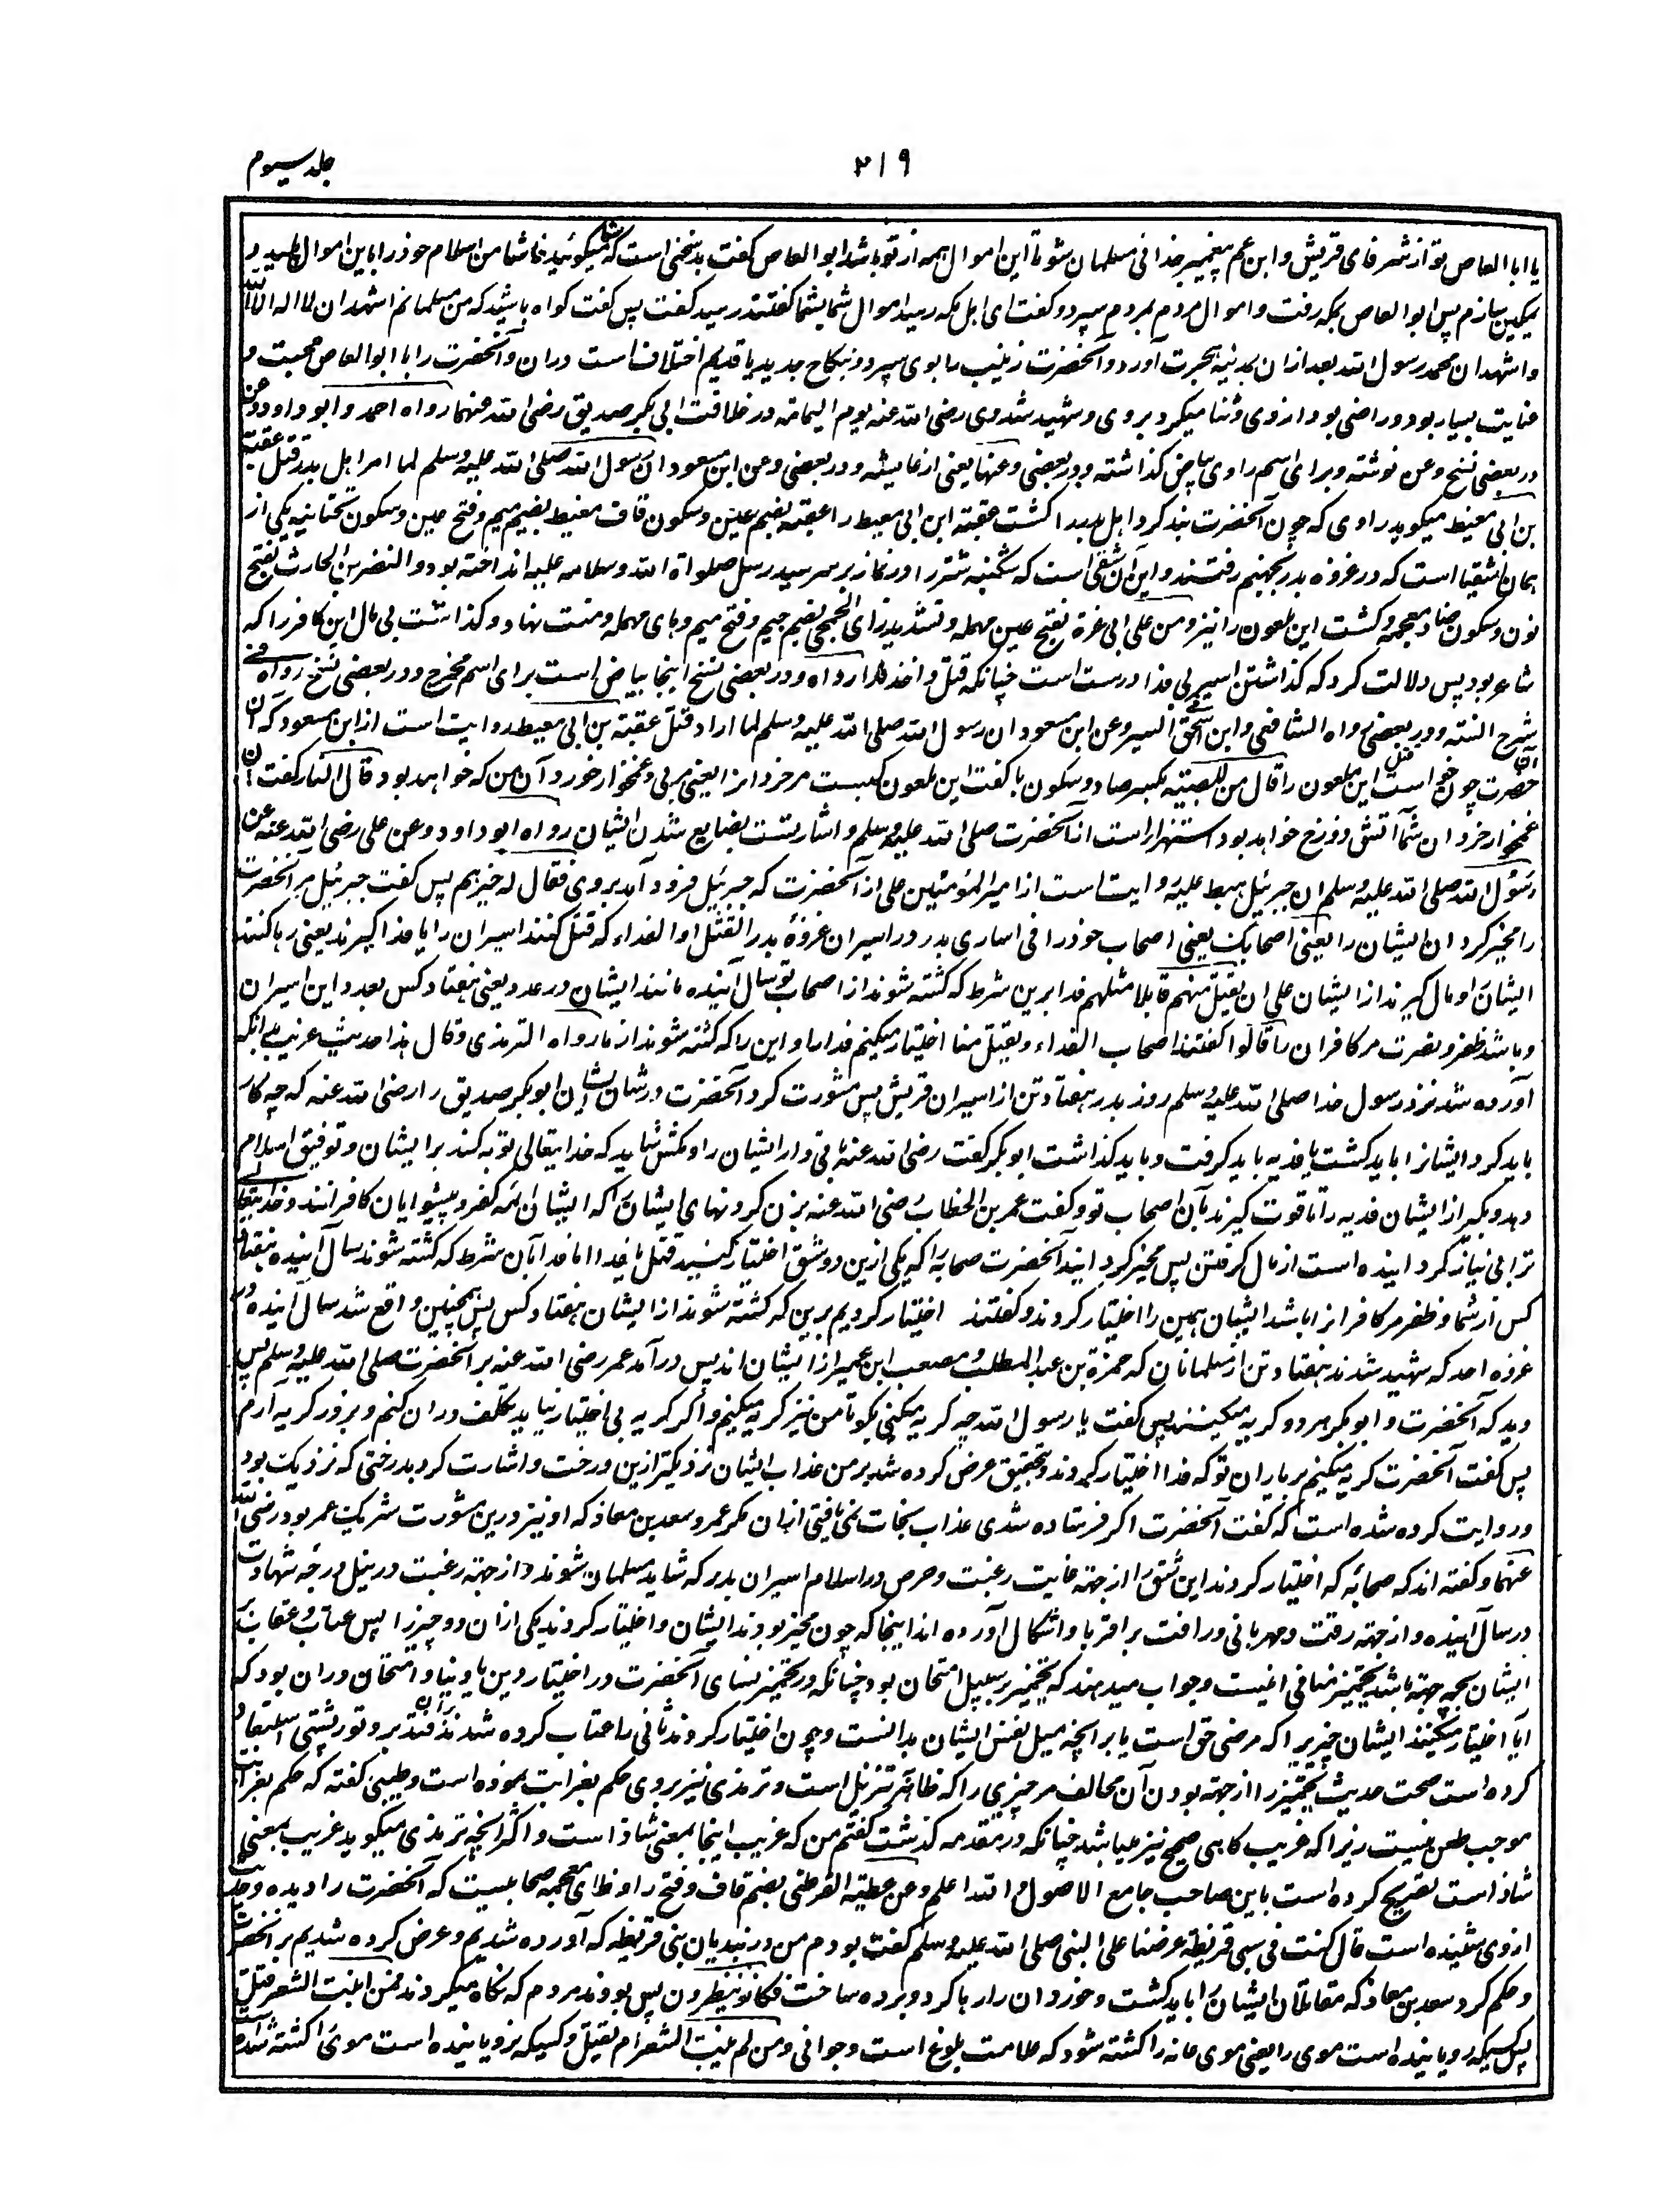 جلد سیوم
۲۱۹
یا ابا العاص تو از شرفای قریش و ابن عم پیغمبر خدا فی مسلمان شو تا این اموال همه از تو باشد ابو العاص گفت بد سخنی است که شما میگوئید من اسلام خود را باین اموال پلید و
پس ابو العاص بمکه رفت و اموال مردم بمردم سپرد و گفت ای اهل مکه رسید اموال شما بشما گفتند رسید گفت پس گفت گواه باشید که من مسلمانم اشهد ان لا اله الا الله
و اشهد ان محمد رسول الله بعد ازان بمدینه هجرت آورد و آنحضرت زینب را بوی سپرد و بنکاح جدید یا قدیم اختلاف است دران و آنحضرت را با ابو العاص محبت و
عنایت بسیار بود و راضی بود از وی و ثنا میکرد بروی و شهید شد وی رضی الله عنه یوم الیمامه در خلافت ابی بکر صدیق رضی الله عنهما رواه احمد و ابو داود و عن
در بعضی نسخ وعن نوشته و برای اسم راوی بیاض گذاشته و در بعضی وعنها یعنی از عایشه و در بعضی وعن ابن مسعود ان رسول الله صلی الله علیه وسلم لما اسر اهل بدر قتل عقبة
بن ابی معیط میگوید راوی که چون آنحضرت بند کرد اهل بدر را کشت عقبة ابن ابی معیط را عقبه بضم عین و سکون قاف معیط بضم میم و فتح عین و سکون تحتانیه یکی از
همان اشقیا است که در غزوه بدر بجهنم رفتند و این آن شقی است که شکنبه شتر را در نماز بر سر سید رسل صلوة الله و سلامه علیه انداخته بود و النضر بن الحارث بفتح
نون و سکون ضاد معجمه و کشت این ملعون را نیز و من علی ابی عزة بفتح عین مهمله و تشدید زای الجمحی بضم جیم و فتح میم و بای مهمله و منت نهاد و گذاشت بی مال این کافر را که
شاعر بود پس دلالت کرد که گذاشتن اسیر بی فدا درست است چنانکه قتل و اخذ فدا رواه و در بعضی نسخ اینجا بیاض است برای اسم مخرج و در بعضی نسخ رواه فی
شرح السنه و در بعضی رواه الشافعی و ابن اسحق فی السیر وعن ابن مسعود ان رسول الله صلی الله علیه وسلم لما اراد قتل عقبة بن ابی معیط روایت است از ابن مسعود که آن
حضرت چون خواست قتل این ملعون را قال من للصبیة بکسر صاد و سکون با گفت این ملعون کیست مر خردانرا یعنی مربی و غمخوار خوردان من که خواهد بود قال النار گفت آن
غمخوار خردان شما آتش دوزخ خواهد بود استهزا است از آنحضرت صلی الله علیه وسلم و اشارتست بضایع شدن ایشان رواه ابو داود وعن علی رضی الله عنه عن
رسول الله صلی الله علیه وسلم ان جبرئیل هبط علیه روایت است از امیر المؤمنین علی از آنحضرت که جبرئیل فرود آمد بروی فقال له خیرهم پس گفت جبرئیل مر آنحضرت
را مخیر گردان ایشان را یعنی اصحابک یعنی اصحاب خود را فی اساری بدر در اسیران غزوۀ بدر القتل او الفداء که قتل کنند اسیران را یا فدا گیرند یعنی رها کنند
ایشان او مال گیرند از ایشان علی ان یقتل منهم قابلا مثلهم فدا برین شرط که کشته شوند از اصحاب تو سال آینده مانند ایشان در عدد یعنی هفتاد کس بعدد این اسیران
و باشد ظفر و نصرت مر کافران را قالوا گفتند اصحاب الفداء و یقتل منا اختیار میکنیم فدا را و این را که کشته شوند از ما رواه الترمذی وقال هذا حدیث غریب بدانکه
آورده شد نزد رسول خدا صلی الله علیه وسلم روز بدر هفتاد تن از اسیران قریش پس مشورت کرد آنحضرت در شان ایشان ابو بکر صدیق را رضی الله عنه که چه کار
باید کرد ایشانرا باید کشت یا فدیه باید گرفت و باید گذاشت ابو بکر گفت رضی الله عنه باقی دار ایشان را و مکش شاید که خدایتعالی توبه کند بر ایشان و توفیق اسلام
دهد و بگیر از ایشان فدیه را تا قوت گیرند بآن اصحاب تو و گفت عمر بن الخطاب رضی الله عنه بزن گردنهای ایشان را که ایشان ائمه کفر و پیشوایان کافرانند و خدایتعالی
ترا بی نیاز گردانیده است از مال گرفتن پس مخیر گردانید آنحضرت صحابه را که یکی ازین دو شق اختیار کنید قتل یا فدا اما فدا بآن شرط که کشته شوند سال آینده هفتاد
کس از شما و ظفر مر کافرانرا باشد ایشان همین را اختیار کردند و گفتند اختیار کردیم برین که کشته شوند از ایشان هفتاد کس پس همچنین واقع شد سال آینده در
غزوه احد که شهید شدند هفتاد تن از مسلمانان که حمزة بن عبد المطلب و مصعب ابن عمیر از ایشان اند پس درآمد عمر رضی الله عنه بر آنحضرت صلی الله علیه وسلم پس
دید که آنحضرت و ابو بکر هر دو گریه میکنند پس گفت یا رسول الله چه گریه میکنی بگو تا من نیز گریه میکنم و اگر گریه بی اختیار نیاید تکلف دران کنم و بزور گریه آرم
پس گفت آنحضرت گریه میکنیم بر یاران تو که فدا اختیار کردند و بتحقیق عرض کرده شد بر من عذاب ایشان نزدیکتر ازین درخت و اشارت کرد بدرختی که نزدیک بود
و روایت کرده شده است که گفت آنحضرت اگر فرستاده شدی عذاب نجات نمی یافتی ازان مگر عمر و سعد بن معاذ که او نیز درین مشورت شریک عمر بود رضی الله
عنهما و گفته اند که صحابه که اختیار کردند این شق را از جهت غایت رغبت و حرص در اسلام اسیران بدر که شاید مسلمان شوند و از جهت رغبت در نیل درجه شهادت
در سال آینده و از جهت رقت و مهربانی و رافت بر اقربا و اشکال آورده اند اینجا که چون مخیر بودند ایشان و اختیار کردند یکی ازان دو چیز را پس عتاب و عقاب بر
ایشان بچه جهت باشد تخییر منافی اینست و جواب میدهند که تخییر بر سبیل امتحان بود چنانکه در تخییر نسای آنحضرت در اختیار دین یا دنیا و امتحان دران بود که
آیا اختیار میکنند ایشان چیزیرا که مرضی حق است یا بر آنچه میل نفس ایشان بدانست و چون اختیار کردند ثانی را عتاب کرده شدند بران و تورپشتی استبعاد
کرده است صحت حدیث تخییر را از جهت بودن آن مخالف مر چیزی را که ظاهر تنزیل است و ترمذی نیز بروی حکم بغرابت نموده است و طیبی گفته که حکم بغرابت
موجب طعن نیست زیرا که غریب گاهی صحیح نیز میباشد چنانکه در مقدمه گذشت گفتم من که غریب اینجا بمعنی شاذ است و اکثر آنچه ترمذی میگوید غریب بمعنی
شاذ است تصریح کرده است باین صاحب جامع الاصول و الله اعلم وعن عطیة القرظی بضم قاف و فتح را و ظای معجمه صحابیست که آنحضرت را دیده و حدیث
ازوی شنیده است قال کنت فی سبی قریظة عرضنا علی النبی صلی الله علیه وسلم گفت بودم من در بندیان بنی قریظه که آورده شدیم و عرض کرده شدیم بر آنحضرت
و حکم کرد سعد بن معاذ که مقاتلان ایشان را باید کشت و خوردان را رها کرد و برده ساخت فکانوا ینظرون پس بودند مردم که نگاه میکردند فمن انبت الشعر قتل
پس کسیکه رویانیده است موی را یعنی موی عانه را کشته شود که علامت بلوغ است و جوانی و من لم ینبت الشعر لم یقتل و کسیکه نرویانیده است موی را کشته نشد